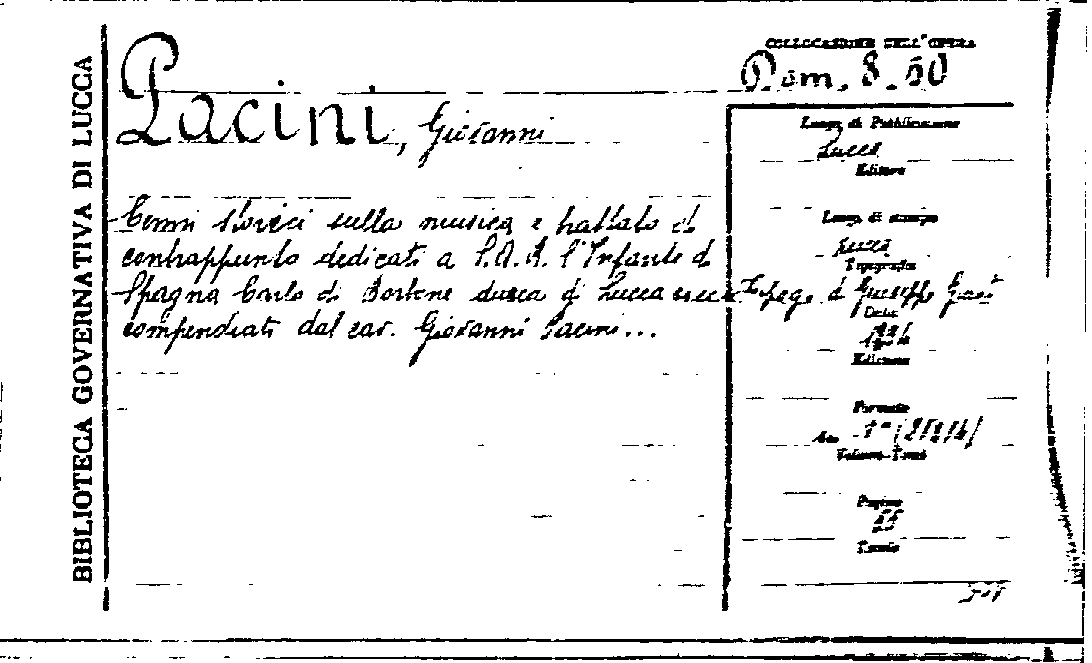 BIBLIOTECA GOVERNATIVA DI LUCCA
Pacini, Giovanni
Cenni storici sulla musica e trattato di
contrappunto dedicati a S.A.R. l'Infante di
Spagna Carlo di Borbone duca di Lucca ecc.
compendiati dal cav. Giovanni Pacini...
COLLOCAZIONE DELL'OPERA
Dom. 8. 60
Luogo di Pubblicazione
Lucca
Editore
Luogo di stampa
Lucca
Tipografia
Tipogr. di Giuseppe
Data
Edizione
Formato
Volume-Tomi
Pagine
Tavole